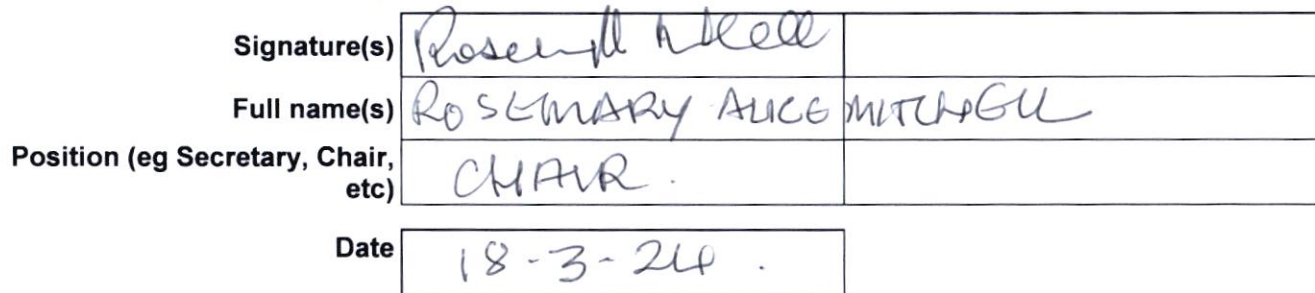 Signature(s)
Full name(s) ROSEMARY ALICE MITCHELL
Position (eg Secretary, Chair,
etc) CHAIR.
Date 18-3-24.